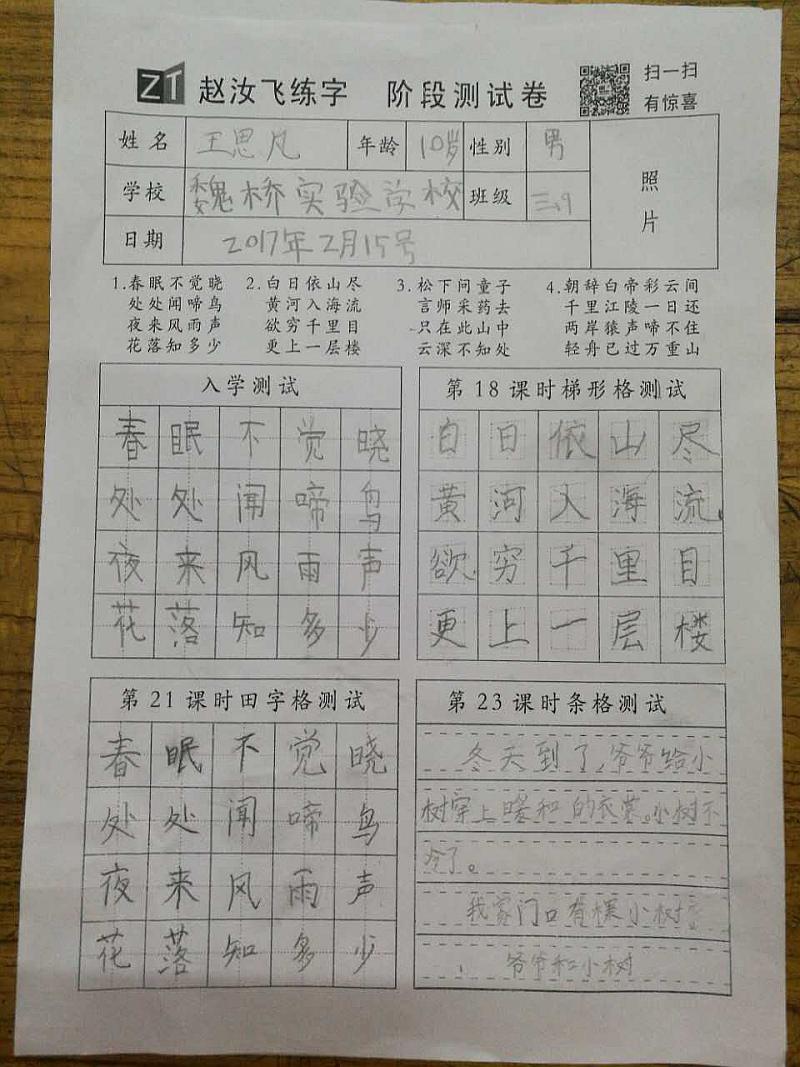 ZT 赵汝飞练字 阶段测试卷 扫一扫
有惊喜
姓名 王思凡 年龄 10岁 性别 男 照片
学校 魏桥实验学校 班级 三.9
日期 2017年2月15号
1.春眠不觉晓 2.白日依山尽 3.松下问童子 4.朝辞白帝彩云间
处处闻啼鸟 黄河入海流 言师采药去 千里江陵一日还
夜来风雨声 欲穷千里目 只在此山中 两岸猿声啼不住
花落知多少 更上一层楼 云深不知处 轻舟已过万重山
入学测试
春眠不觉晓
处处闻啼鸟
夜来风雨声
花落知多少
第18课时梯形格测试
白日依山尽
黄河入海流
欲穷千里目
更上一层楼
第21课时田字格测试
春眠不觉晓
处处闻啼鸟
夜来风雨声
花落知多少
第23课时条格测试
冬天到了,爷爷给小
树穿上暖和的衣裳。小树不
冷了。
我家门口有棵小树
爷爷和小树